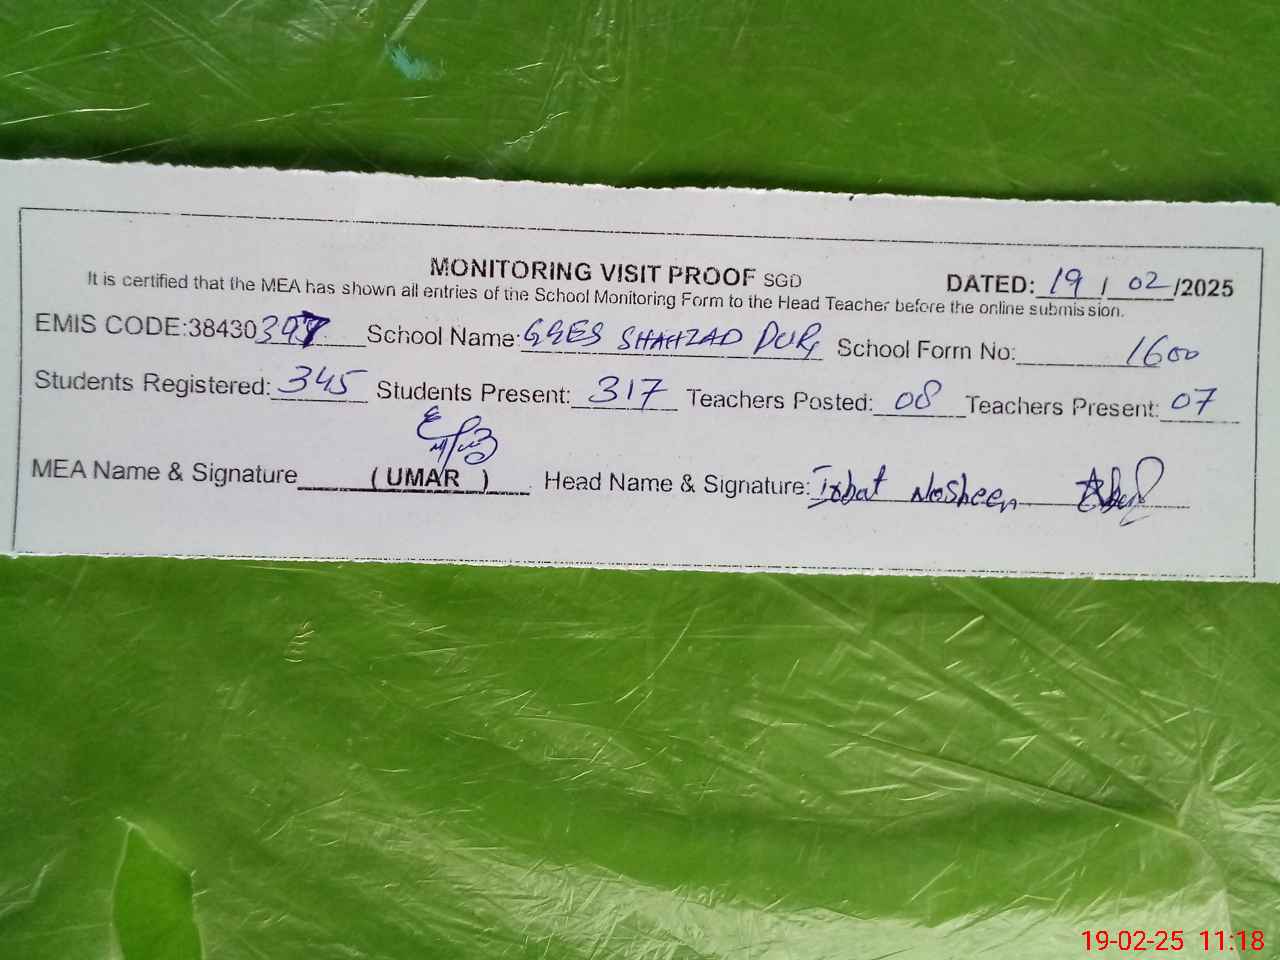 MONITORING VISIT PROOF SGD DATED: 19 / 02 /2025
It is certified that the MEA has shown all entries of the School Monitoring Form to the Head Teacher before the online submission.
EMIS CODE:38430397 School Name: GGES SHAHZAD PUR School Form No: 1600
Students Registered: 345 Students Present: 317 Teachers Posted: 08 Teachers Present: 07
MEA Name & Signature (UMAR ) Head Name & Signature: Nosheen
19-02-25 11:18